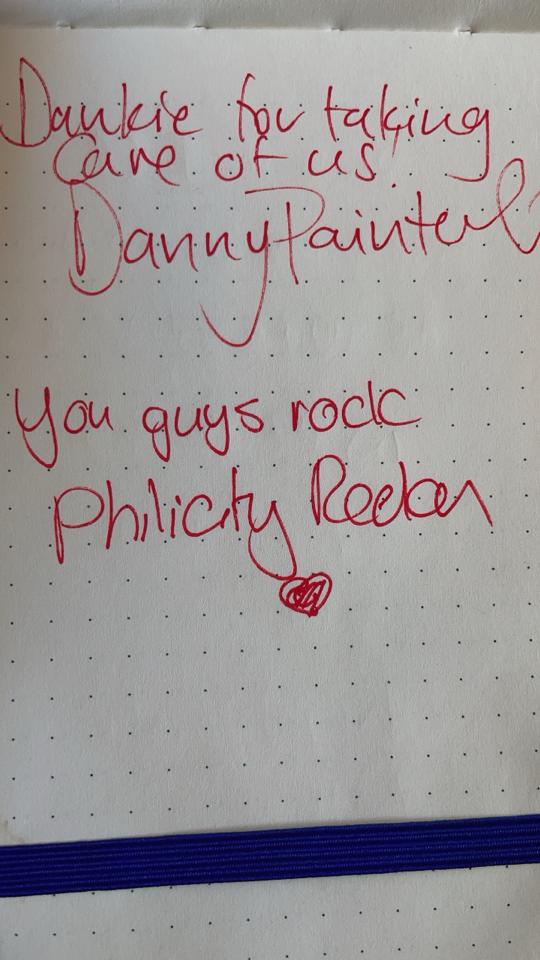 Dankie for taking
care of us!
Danny Painter
You guys rock
Philicity Reeken